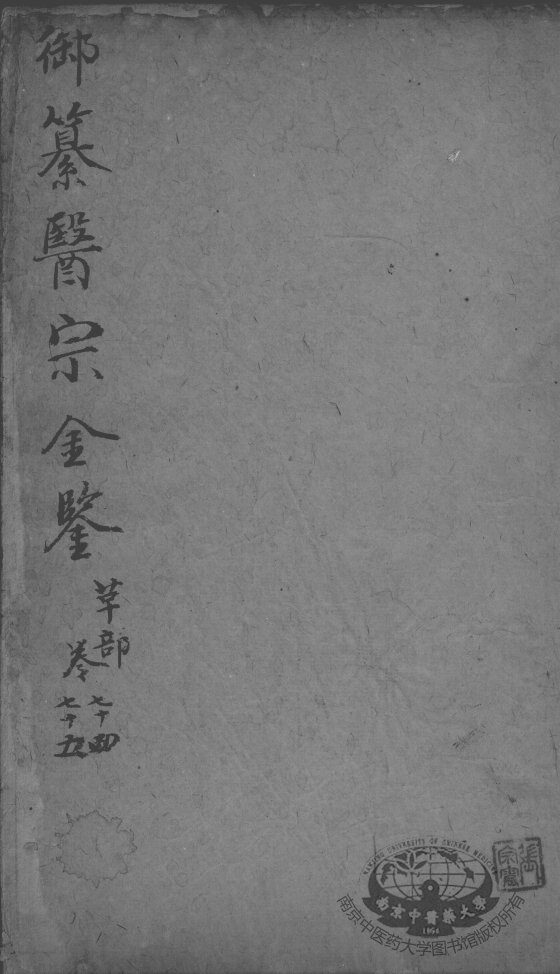 御纂醫宗金鑒
草部
卷
七十四
七十五
NANJING UNIVERSITY OF CHINESE MEDICINE
南京中醫藥大學
1954
南京中医药大学图书馆版权所有